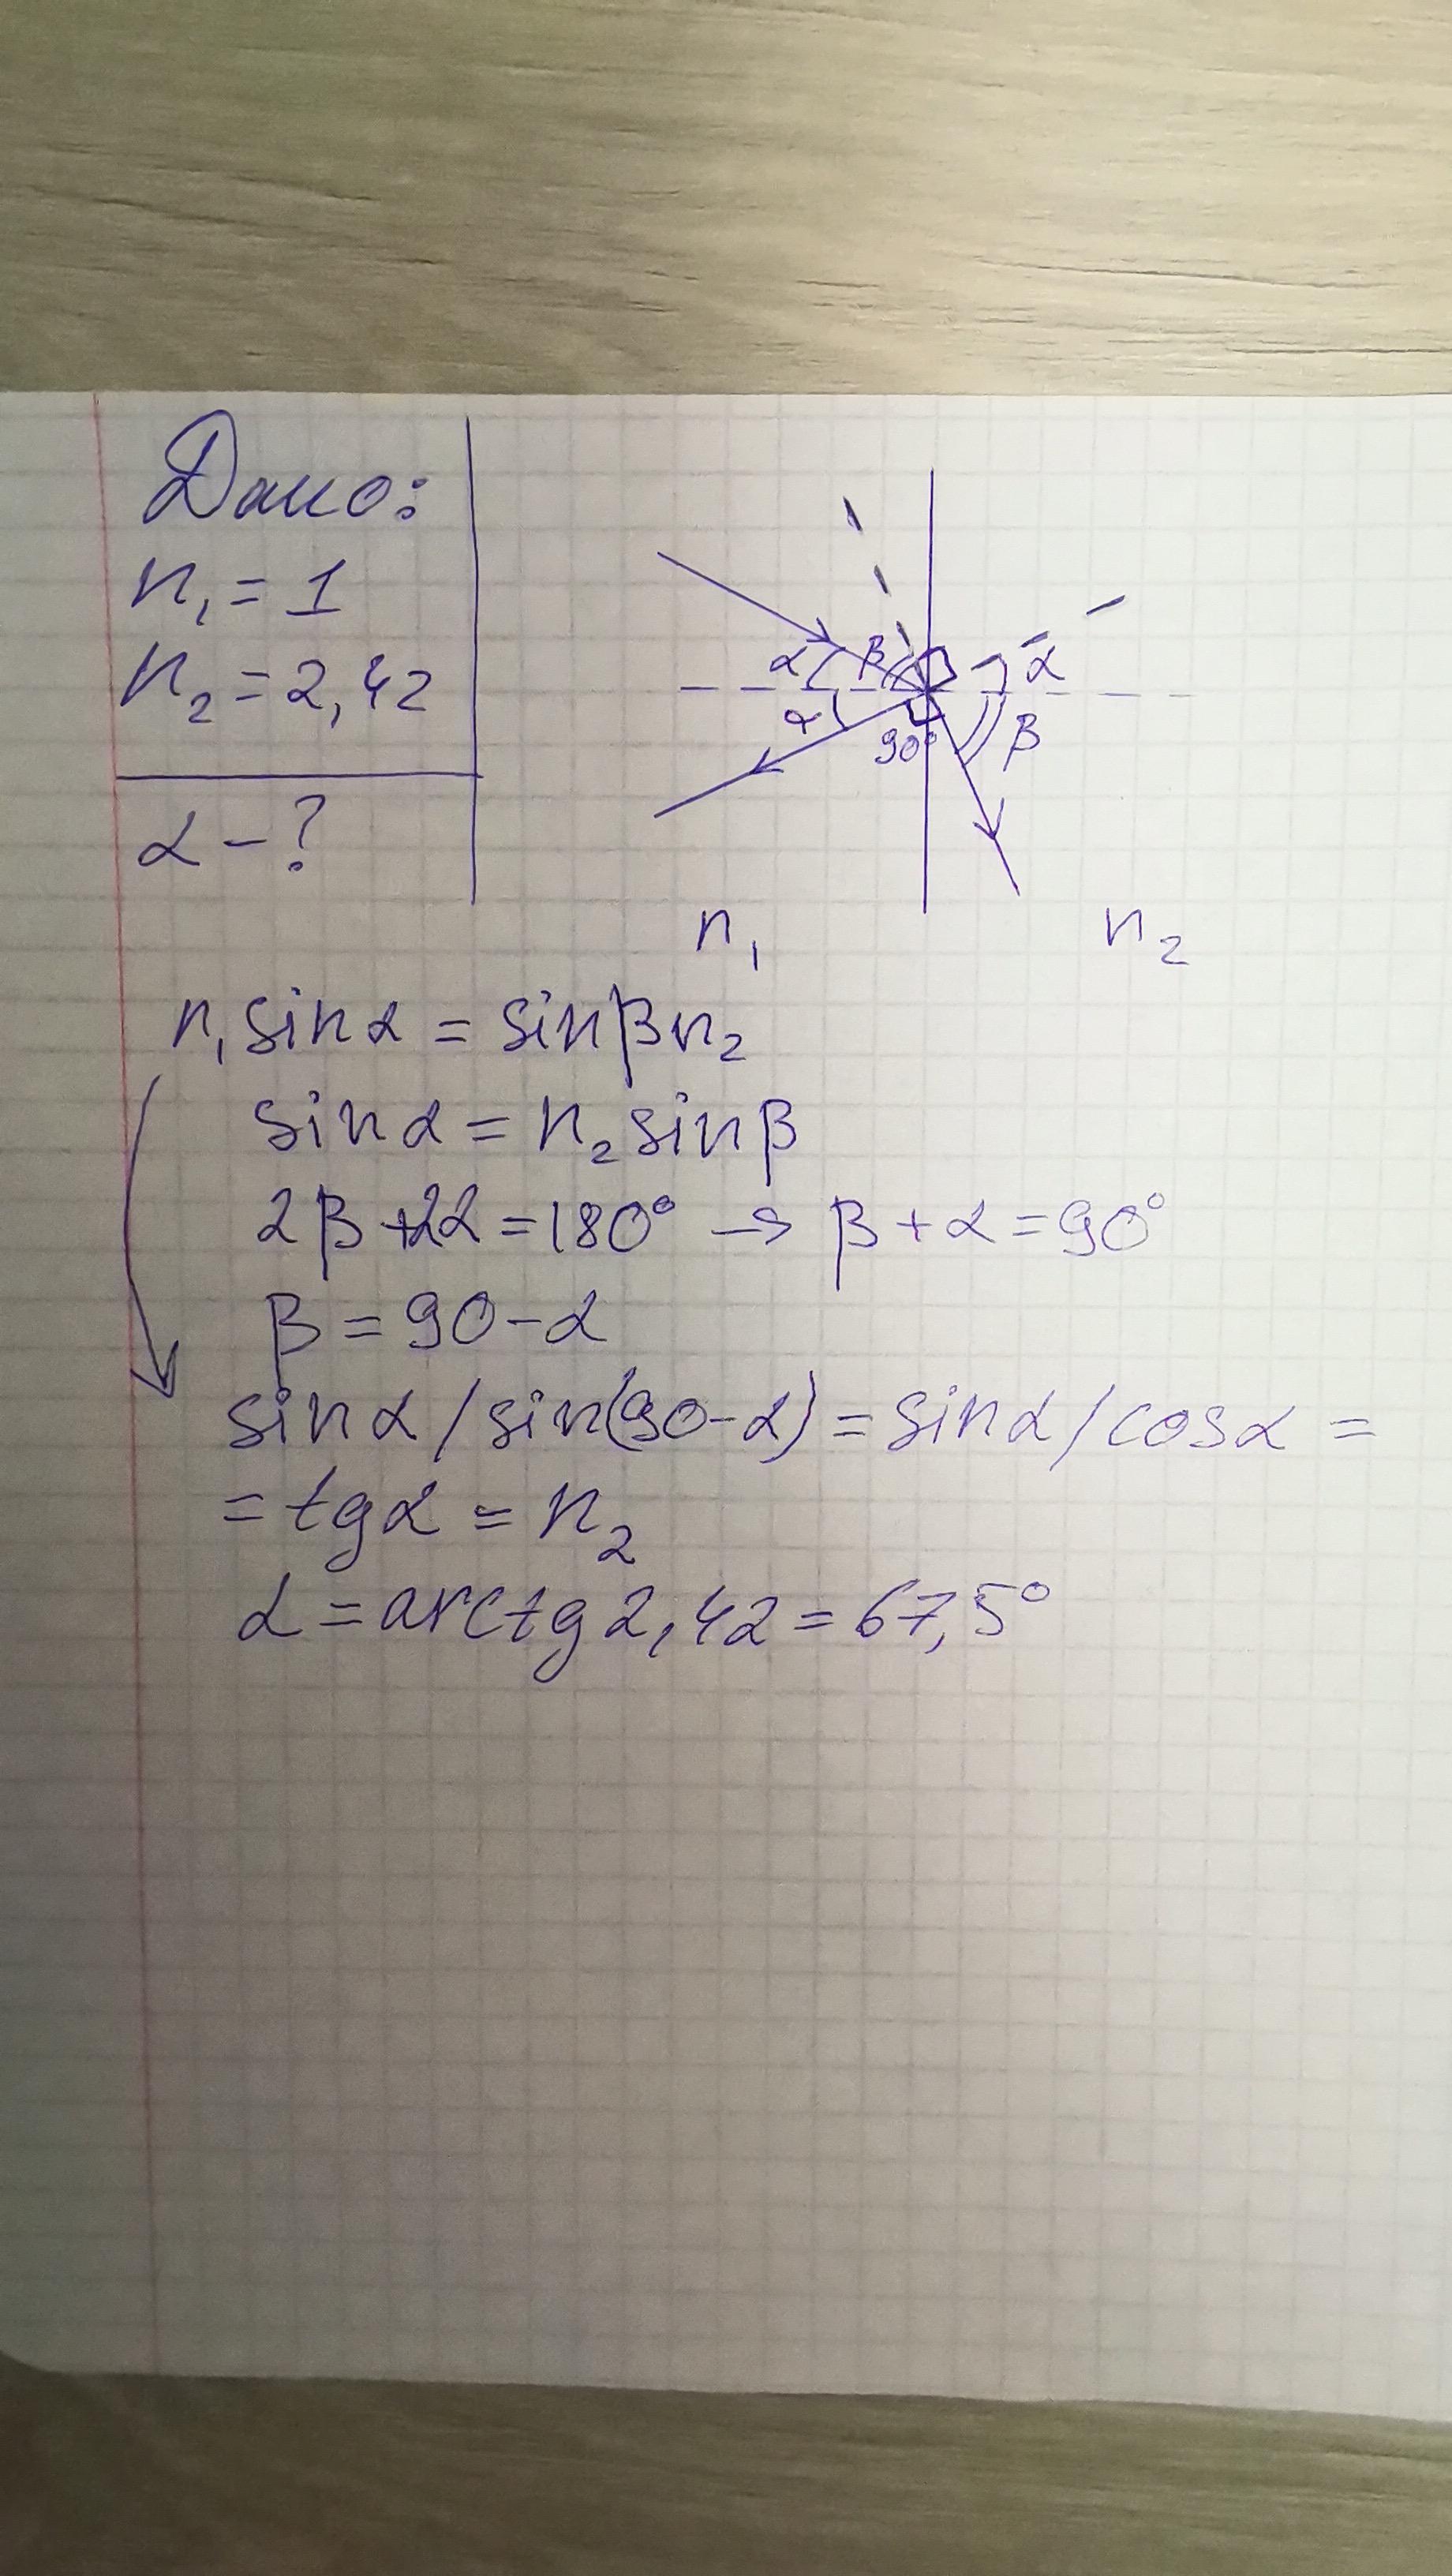 Дано:
n₁ = 1
n₂ = 2,42
α – ?
α β α
α 90° β
n₁ n₂
n₁ sinα = sinβ n₂
sinα = n₂ sinβ
2β + 2α = 180° → β + α = 90°
β = 90 – α
sinα / sin(90 – α) = sinα / cosα =
= tgα = n₂
α = arctg 2,42 = 67,5°